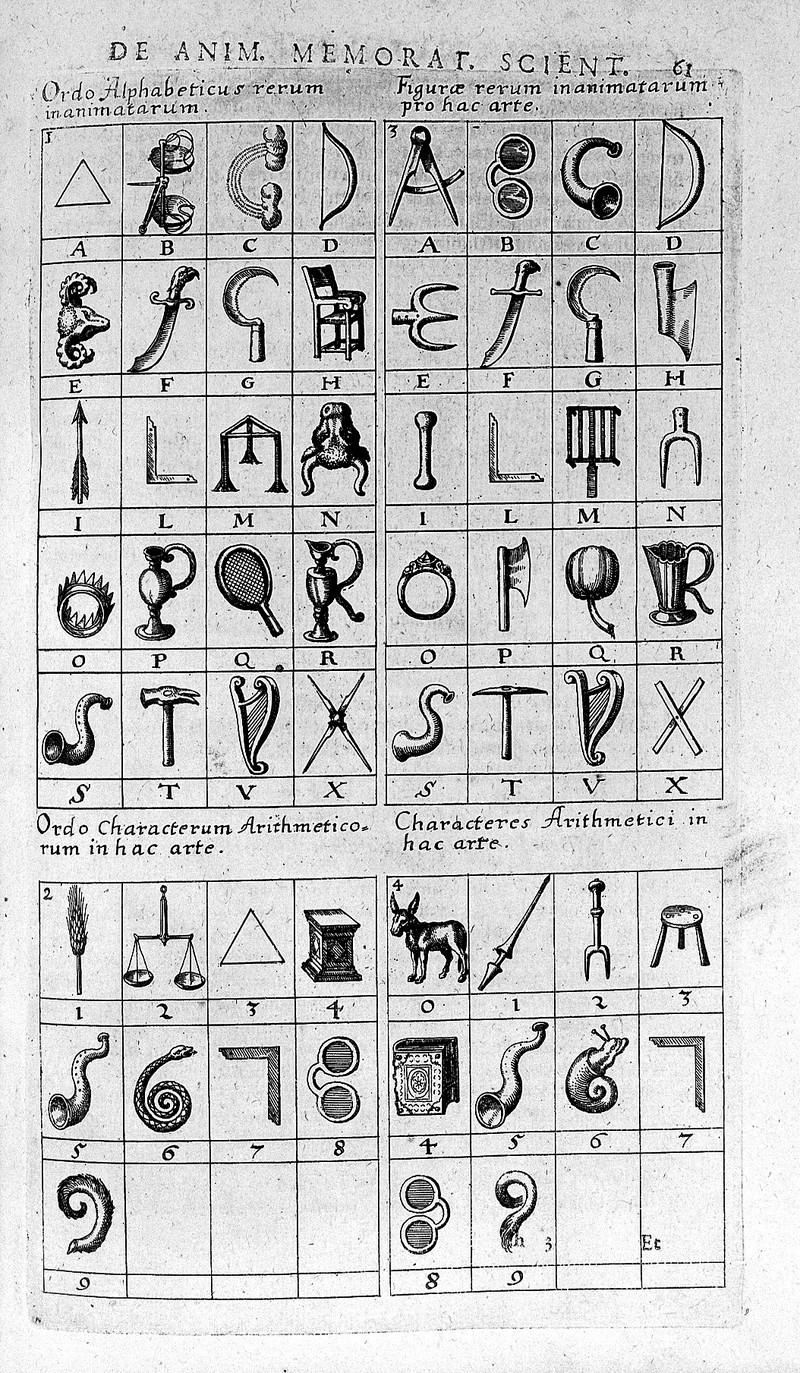 DE ANIM. MEMORAT. SCIENT. 61
Ordo Alphabeticus rerum
inanimatarum.
1
A B C D
E F G H
I L M N
O P Q R
S T V X
Figuræ rerum inanimatarum
pro hac arte.
3
A B C D
E F G H
I L M N
O P Q R
S T V X
Ordo Characterum Arithmetico=
rum in hac arte.
2
1 2 3 4
5 6 7 8
9
Characteres Arithmetici in
hac arte.
4
0 1 2 3
4 5 6 7
h 3 Et
8 9